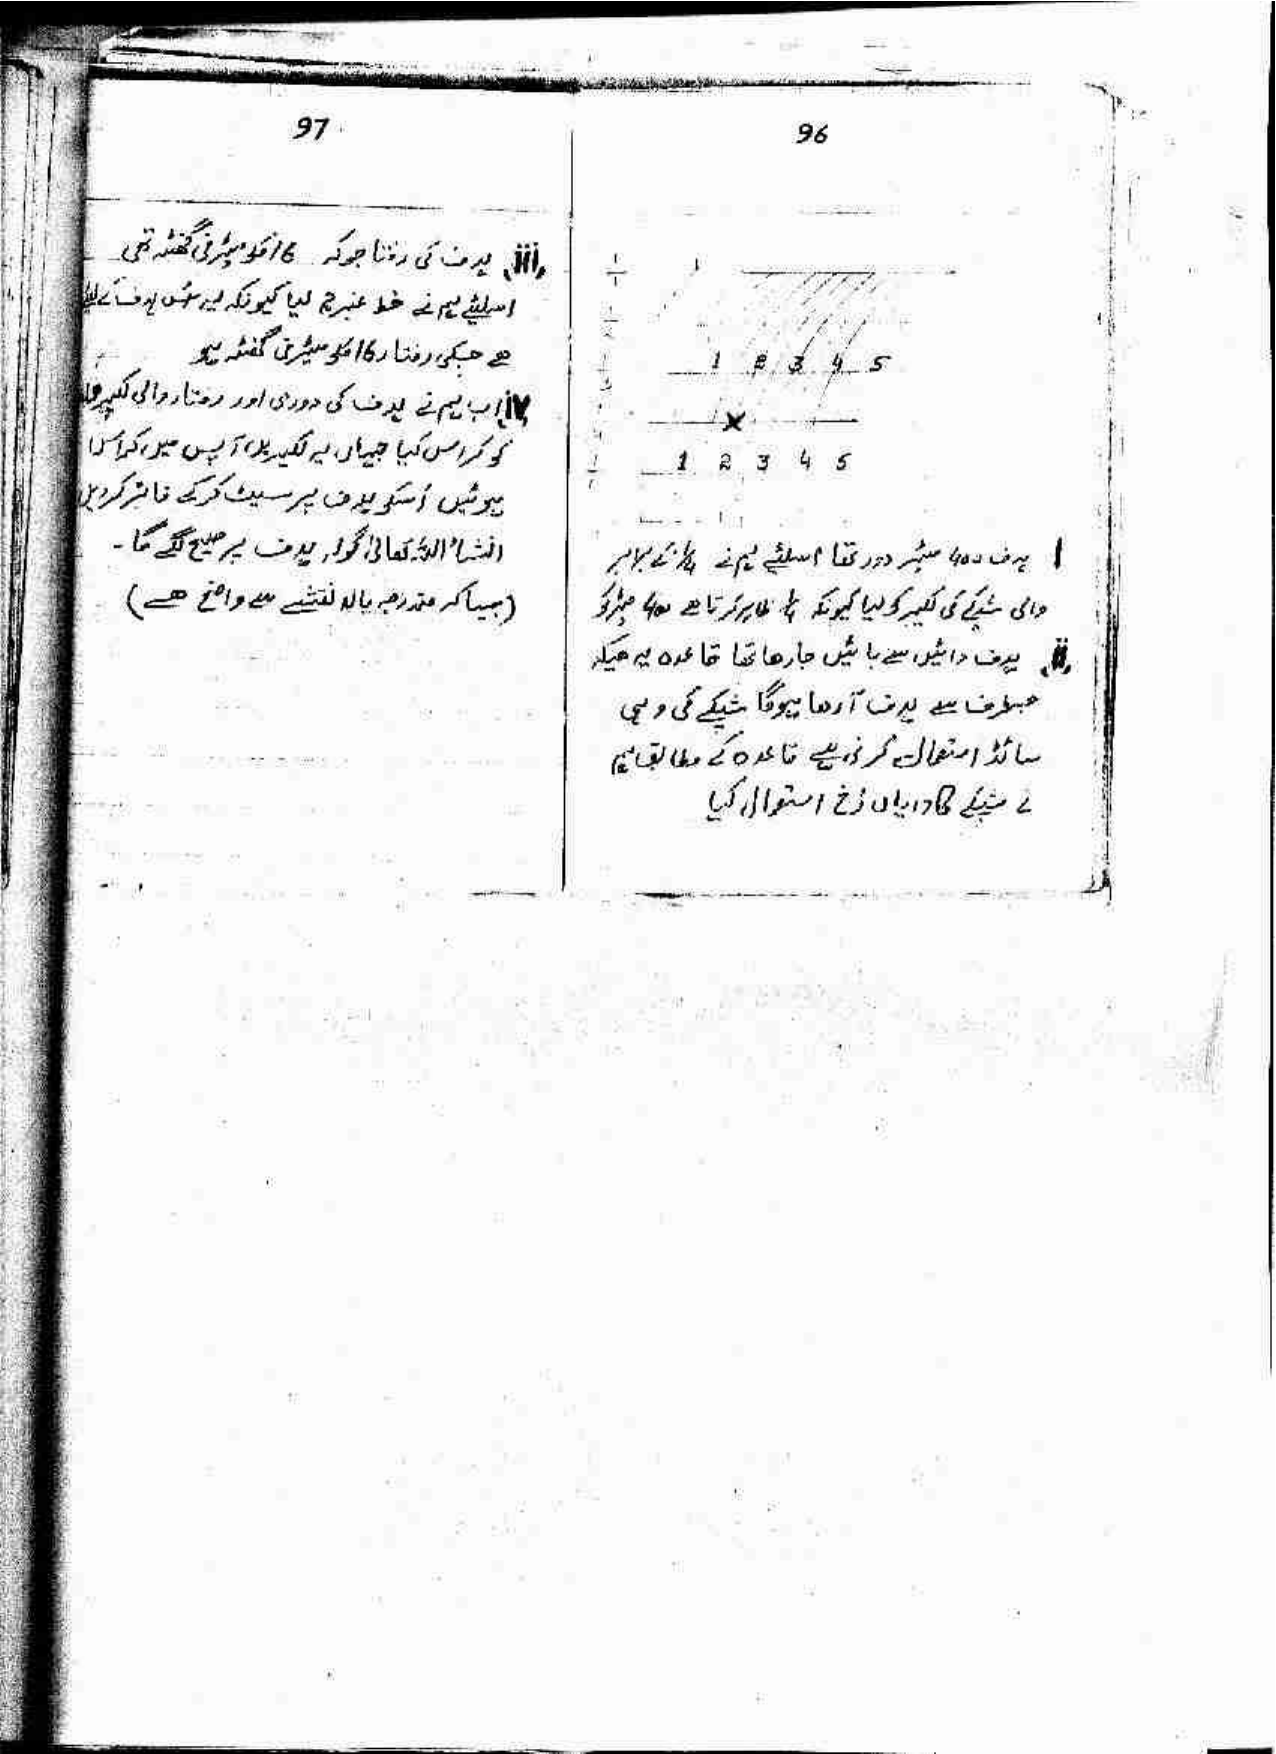 96
1 2 3 4 5
x
1 2 3 4 5
ا ہدف 400 میٹر دور تھا اسلئیے ہم نے 1/4 کے برابر
والی شپکے کی لکیر کو لیا کیونکہ 1/4 ظاہر کرتا ھے 400 میٹر کو
ii ہدف دائیں سے بائیں جارھا تھا قاعدہ یہ ھیکہ
جسطرف سے ہدف آرھا ہوگا شپکے کی وہی
سائڈ استعمال کرنی ہے قاعدہ کے مطابق ہم
نے شپکے کا دایاں رُخ استعمال کیا
97
iii ہدف کی رفتار جوکہ 16 کلو میٹر فی گھنٹہ تھی
اسلئیے ہم نے خط نمبر 2 لیا کیونکہ یہ اس ہدف کے لیئے
ھے جسکی رفتار 16 کلو میٹر فی گھنٹہ ہو
iv اب ہم نے ہدف کی دوری اور رفتار والی لکیروں
کو کراس کیا جہاں یہ لکیریں آپس میں کراس
ہوئیں اُسکو ہدف پر سیٹ کرکے فائر کردیں
انشاءاللہ تعالیٰ گولہ ہدف پر صحیح لگے گا۔
(جیسا کہ مندرجہ بالا نقشے سے واضح ھے)